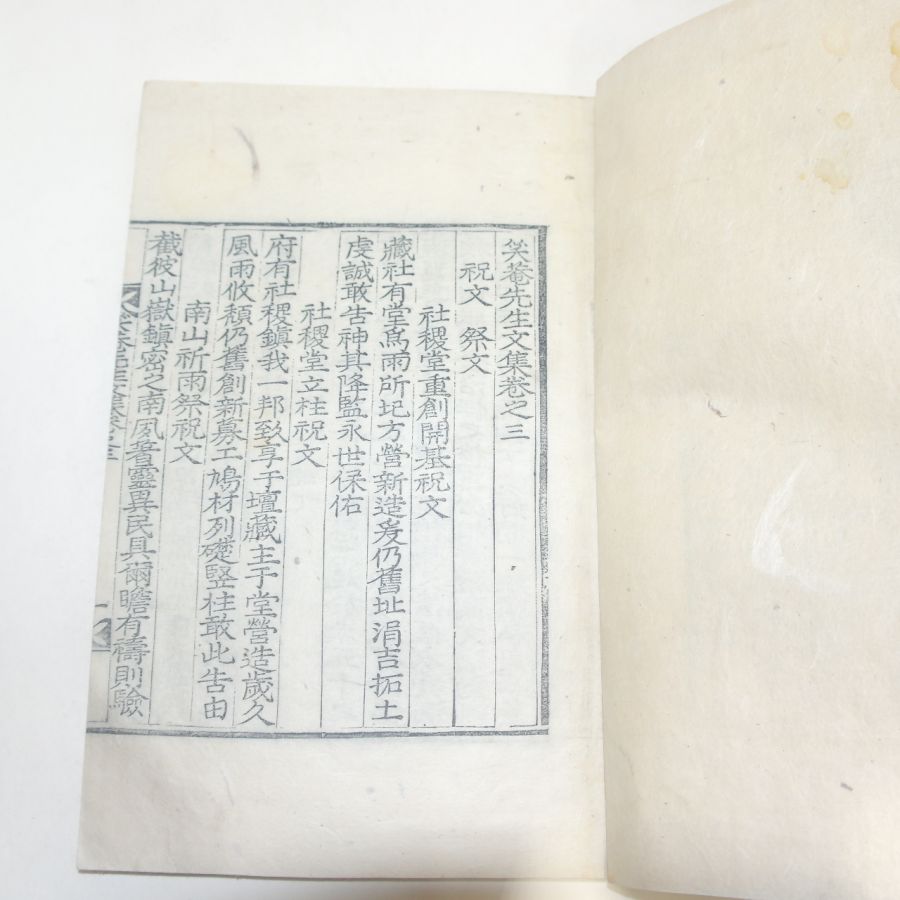 笑菴先生文集卷之三
祝文 祭文
社稷堂重創開基祝文
藏社有堂爲雨所圮方營新造爰仍舊址涓吉拓土
虔誠敢告神其降監永世保佑
社稷堂立柱祝文
府有社稷鎭我一邦致享于壇藏主于堂營造歲久
風雨攸頹仍舊創新募工鳩材列礎竪柱敢此告由
南山祈雨祭祝文
截彼山嶽鎭密之南夙著靈異民具爾瞻有禱則驗
笑菴先生文集卷之三
一